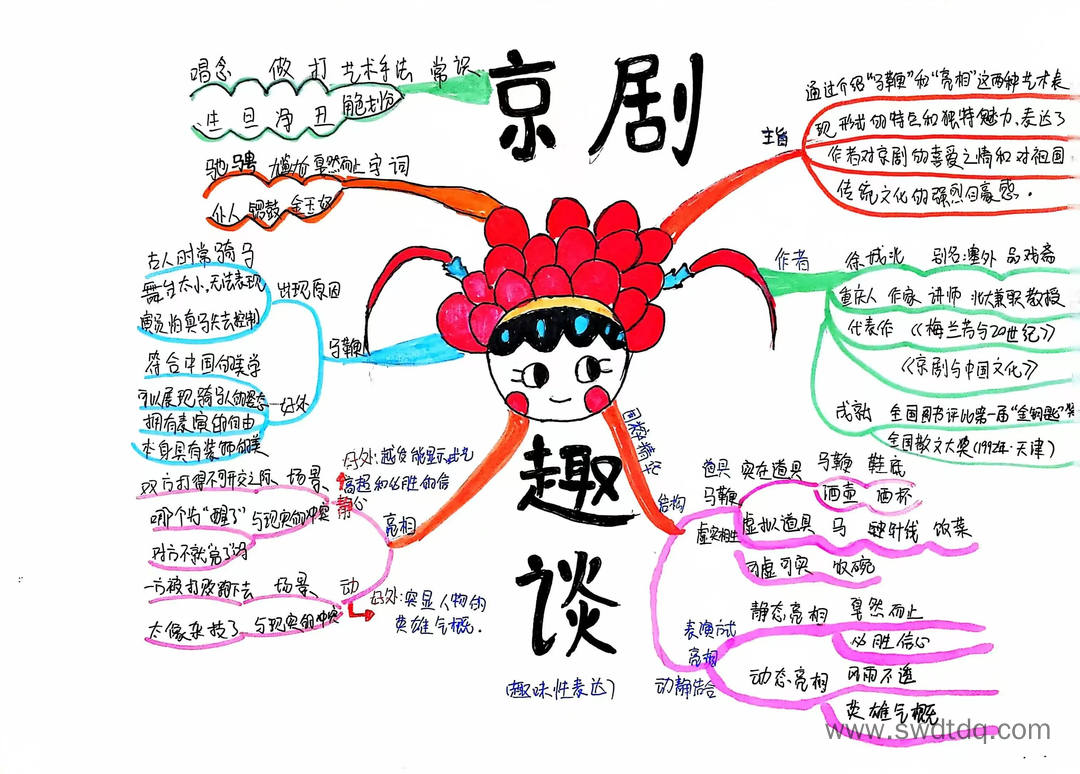 京剧
趣
谈
唱念 做 打 艺术手法 常识
生 旦 净 丑 角色划分
驰骋 尴尬 戛然而止 字词
仆人 锣鼓
古人时常骑马
舞台太小,无法表现
演员怕真马失去控制
出现原因
马鞭
符合中国的美学
可以展现骑马人的
拥有表演的自由
本身具有装饰的美
好处
双方打得不可开交之际、场景、
哪个为“醒了” 与现实的冲突
对方不就“完了”吗
静
好处:越发能显示武艺
高超和必胜的信
亮相
一方被打败跑下去 场景、
太像杂技了、与现实的冲突
动
好处:突显人物的
英雄气概.
主旨
通过介绍“马鞭”和“亮相”这两种艺术表
现形式的特色和独特魅力、表达了
作者对京剧的喜爱之情和对祖国
传统文化的强烈自豪感.
作者
徐城北 别名:塞外 品戏斋
重庆人 作家 讲师 北大兼职教授
代表作 《梅兰芳与20世纪》
《京剧与中国文化》
成就 全国图书评比第一届“金钥匙”奖
全国散文大奖(1992年·天津)
国粹精论
结构
道具 实在道具 马鞭 鞋底
马鞭 酒壶 酒杯
虚实相生 虚拟道具 马 缝针线 饭菜
可虚可实 饭碗
表演方式
亮相
动静结合
静态亮相 戛然而止
必胜信心
动态亮相 风雨不透
英雄气概
(趣味性表达)
www.swdtdq.com